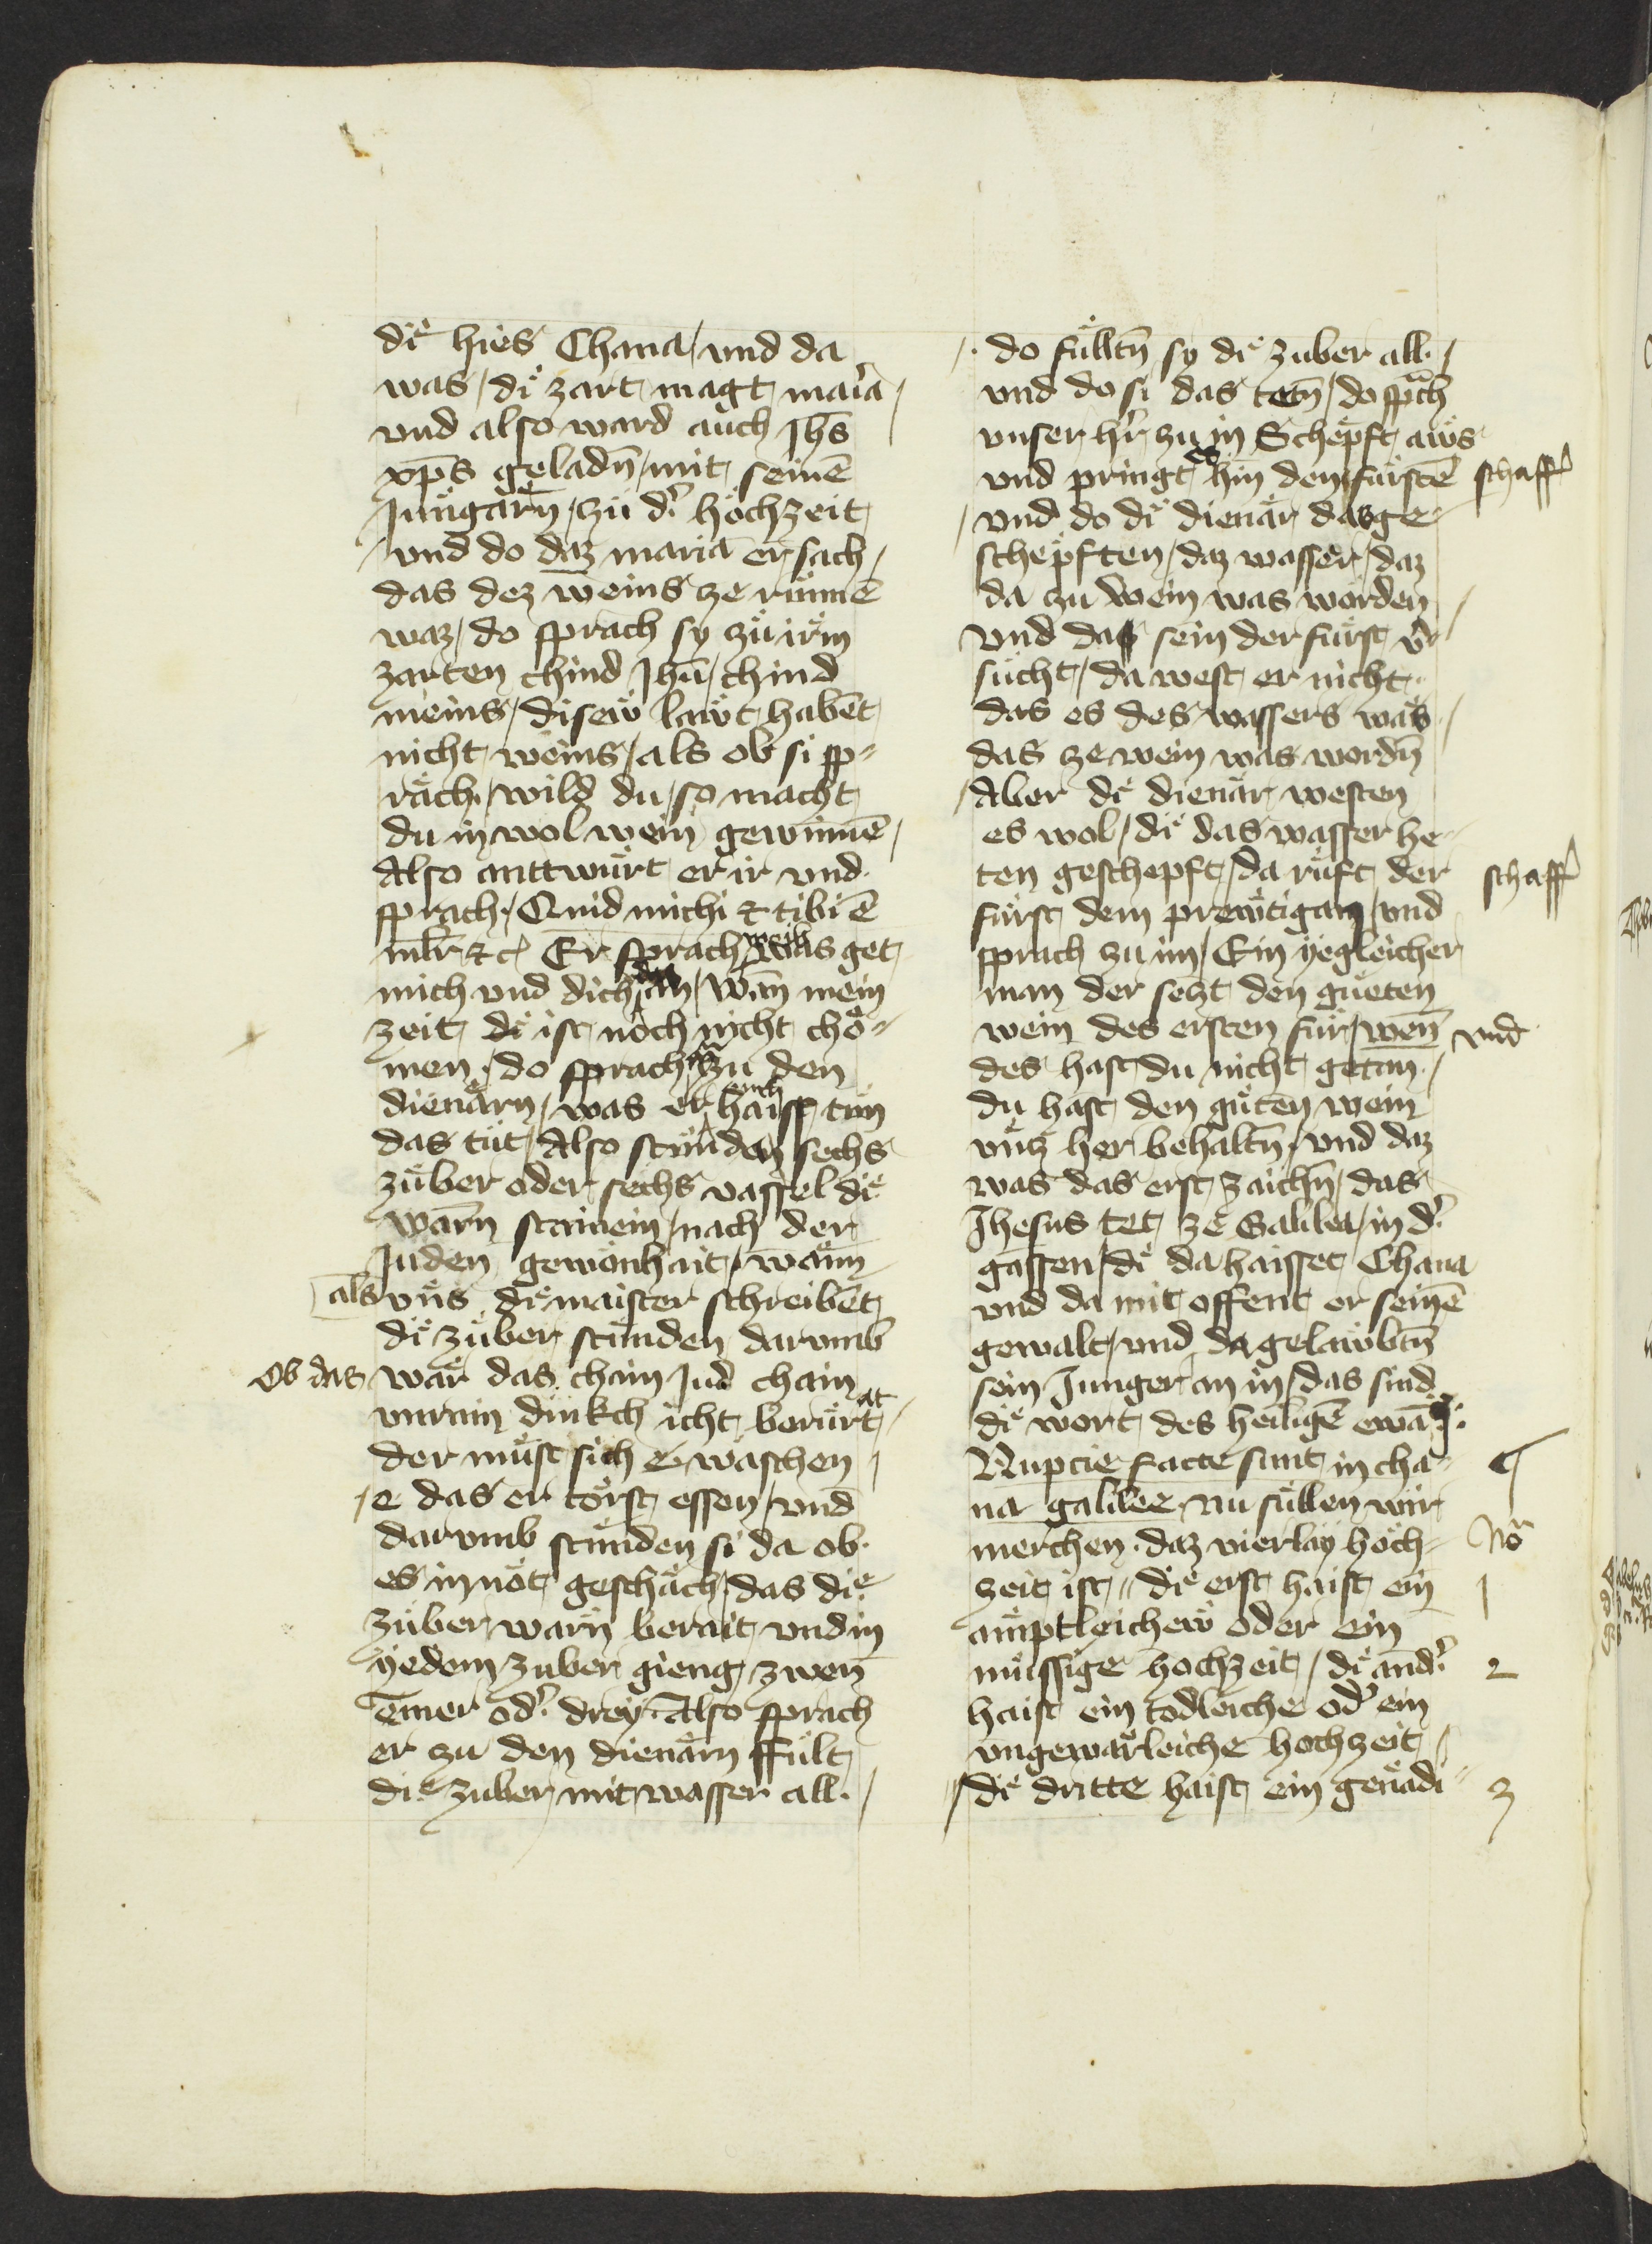 die hies Chana / vnd da
was / die zart magt maria /
vnd also ward auch Jhs
xps geladn / mit seinē
Jungarn / zu d' hochzeit
/ vnd do daz maria ersach /
das dez weins ze runnē
waz / do sprach sy zu irm
zarten chind Jhu / chind
meins / disew lawt habēt
nicht weins / als ob si sp=
räch / wild du / so macht
du in wol wein gewinnē /
Also anttwurt er ir vnd
sprach / Quid michi et tibi ē
mlr etc Er sprach weib was get
mich vnd dich das an / wan mein
zeit die ist noch nicht cho=
men / do sprach zu den
dienärn / was er euch haiss tun
das tut / Also stunden sechs
zuber oder sechs vassel die
warn stainein / nach der
Juden gewonhait / wann
als vns die maister schreibēt
die zuber stunden darumb
Ob das war das chain Jud chain
vnrain dinkch icht berurt at
der must sich e waschen /
/ e das er törst essen / vnd
darumb stunden si da ob
es in not geschäch / das die
zuber warn berait vnd in
yedem zuber gieng zwen
emer od' drey Also sprach
er zu den dienärn ffult
die zuber mit wasser all /
/ do fulltn sy die zuber all /
vnd do si das tetn / do sprach
vnser hr zu in Schepft aws
vnd pringt es hin dem furstē schaff'
/ vnd do die dienär das ge=
schepften / daz wasser / daz
da zu wein was worden /
vnd das sein der furst v'r
sucht / da west er nicht
das es des wassers was /
das ze wein was wordn
/ Aber die dienär westen
es wol / die das wasser he=
ten geschepft / da ruft der schaff'
furst dem prewtigam / vnd
sprach zu im / Ein yegleicher
man der sezt den gueten
wein des ersten fur / wen vnd
des hast du nicht getan /
du hast den guten wein
vntz her behaltn / vnd daz
was das erst zaichn / das
Jhesus tet ze Galilea / in d'
gassen / die da haisset Chana
vnd da mit offent er seinē
gewalt / vnd da gelawbtn
sein Junger an in / das sind
die wort des heiligē ewāg:
Nupcie facte sunt in cha=
na galilee nu sullen wir
merchen daz vierlay hoch= No
zeit ist // die erst haist ein 1
amptleichew oder ein
mussige hochzeit / die and' 2
haist ein todleiche od' ein
vngewärleiche hochzeit /
/ die dritte haist ein genadi= 3